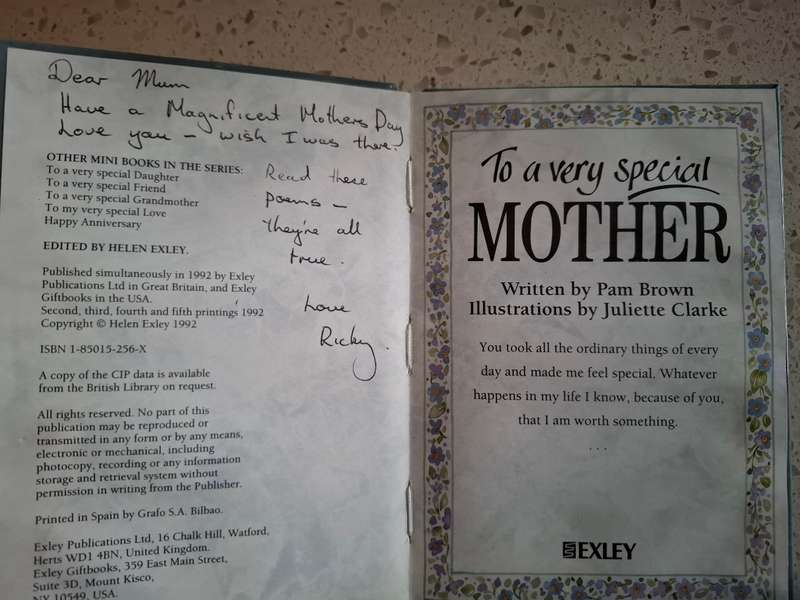 Dear Mum
Have a Magnificent Mothers Day
Love you - wish I was there.
Read these
poems -
they're all
true.
Love
Ricky.
OTHER MINI BOOKS IN THE SERIES:
To a very special Daughter
To a very special Friend
To a very special Grandmother
To my very special Love
Happy Anniversary
EDITED BY HELEN EXLEY.
Published simultaneously in 1992 by Exley
Publications Ltd in Great Britain, and Exley
Giftbooks in the USA.
Second, third, fourth and fifth printings 1992
Copyright © Helen Exley 1992
ISBN 1-85015-256-X
A copy of the CIP data is available
from the British Library on request.
All rights reserved. No part of this
publication may be reproduced or
transmitted in any form or by any means,
electronic or mechanical, including
photocopy, recording or any information
storage and retrieval system without
permission in writing from the Publisher.
Printed in Spain by Grafo S.A. Bilbao.
Exley Publications Ltd, 16 Chalk Hill, Watford,
Herts WD1 4BN, United Kingdom.
Exley Giftbooks, 359 East Main Street,
Suite 3D, Mount Kisco,
NY 10549, USA.
To a very special
MOTHER
Written by Pam Brown
Illustrations by Juliette Clarke
You took all the ordinary things of every
day and made me feel special. Whatever
happens in my life I know, because of you,
that I am worth something.
. . .
EXLEY